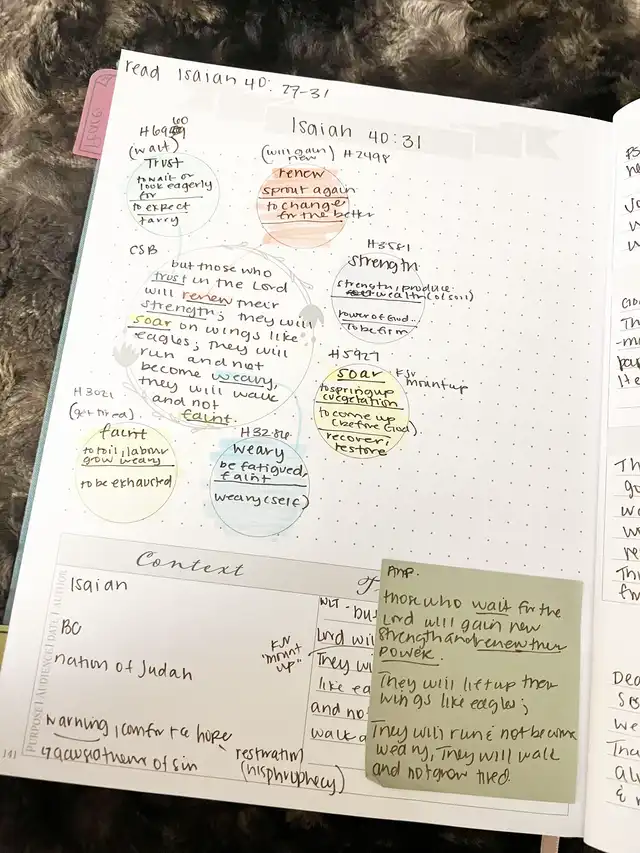 read Isaiah 40: 27-31
Isaiah 40:31
(wait)
Trust
to wait or
look eagerly
for
to expect
tarry
(will gain new) H2498
renew
sprout again
to change
for the better
CSB
but those who
trust in the Lord
will renew their
strength; they will
soar on wings like
eagles; they will
run and not
become weary,
they will walk
and not
faint.
H3581
strength
strength, produce
wealth (of soil)
power of God..
to be firm
H5927
soar
KJV
mount up
to spring up
(vegetation)
to come up
(before God)
recover;
restore
H3021
(get tired)
faint
to toil, labour
grow weary
to be exhausted
H3286
weary
be fatigued,
faint
weary (self)
Context
PURPOSE | AUDIENCE | DATE | AUTHOR
Isaiah
BC
nation of Judah
warning, comfort & hope
restoration
(his prophecy)
of sin
141
NLT - but
Lord wil
KJV
"mount
up"
They wi
like ea
and no
walk a
AMP.
those who wait for the
Lord will gain new
strength and renew their
power.
They will lift up their
wings like eagles;
They will run & not become
weary, They will walk
and not grow tired.